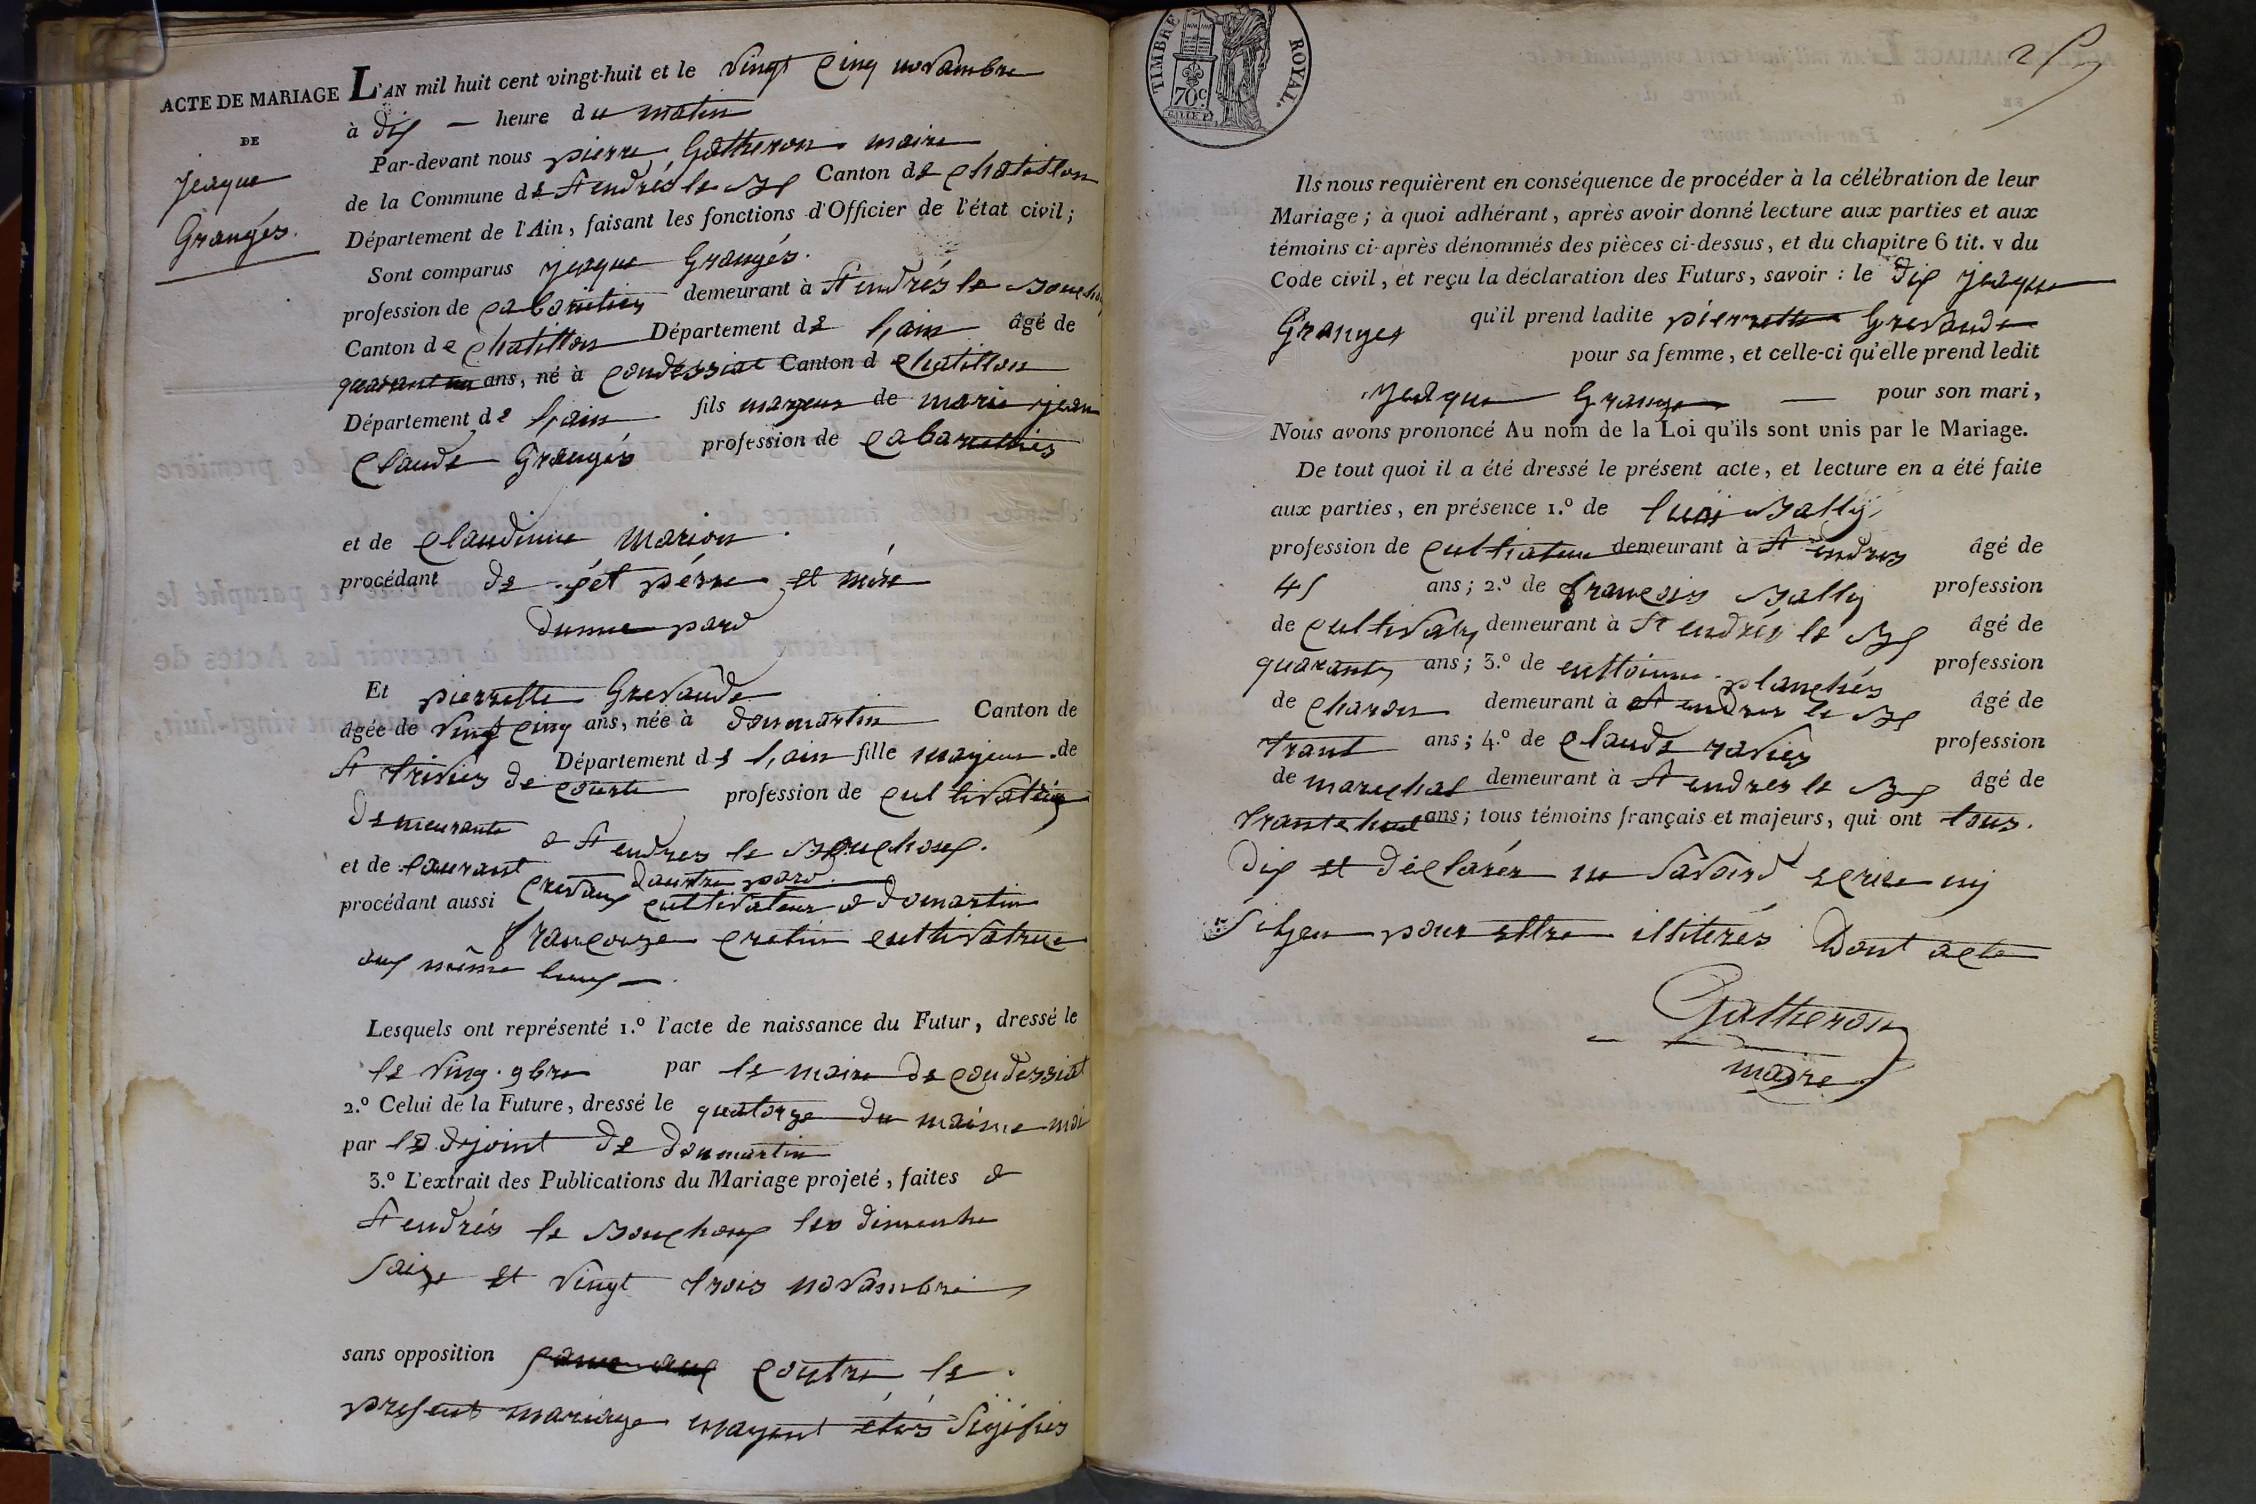 ACTE DE MARIAGE
DE
jeaque
Grangés.
L'AN mil huit cent vingt-huit et le vingt cinq novambre
à dix — heure du matin
Par-devant nous pierre Gatheron maire
de la Commune de St endrés le Bx Canton de chatillon
Département de l'Ain, faisant les fonctions d'Officier de l'état civil;
Sont comparus jeaque Grangés.
profession de cabaretier demeurant à St endrés le Bouchou
Canton de chatillon Département de l'ain âgé de
quarant un ans, né à condessiat Canton d chatillon
Département de l'ain fils majeur de marie jean
claude Grangés profession de cabaretier
et de claudinne marion
procédant de cét pérre et mére
dunne pard
Et pierrette Grevaude
âgée de vingt cinq ans, née à donmartin Canton de
St triviés de courte Département de l'ain fille majeur de
profession de cultivatrise
demeurante a St endres le Bouchoux.
et de laurant crevaux dauttre pard.
procédant aussi cultivateur a domartin
francoize cretin cultivatrice
aux même lieux
Lesquels ont représenté 1.º l'acte de naissance du Futur, dressé le
le ving 9bre par le maire de condessiat
2.º Celui de la Future, dressé le quatorze du maisme moi
par l'adjoint de donmartin
3.º L'extrait des Publications du Mariage projeté, faites a
St endrés le Bouchoux les dimenche
saize et vingt trois novambre
sans opposition contre le
present mariage nayant étés sigifiés
TIMBRE ROYAL.
70c
25
Ils nous requièrent en conséquence de procéder à la célébration de leur
Mariage; à quoi adhérant, après avoir donné lecture aux parties et aux
témoins ci-après dénommés des pièces ci-dessus, et du chapitre 6 tit. v du
Code civil, et reçu la déclaration des Futurs, savoir : le dix jeaque
Granges qu'il prend ladite pierrette Grevaude
pour sa femme, et celle-ci qu'elle prend ledit
jeaque Grange — pour son mari,
Nous avons prononcé Au nom de la Loi qu'ils sont unis par le Mariage.
De tout quoi il a été dressé le présent acte, et lecture en a été faite
aux parties, en présence 1.º de Bally
profession de cultivateur demeurant à St endres âgé de
45 ans; 2.º de francois Bally profession
de cultivateur demeurant à St endrés le Bx âgé de
quarante ans; 3.º de enttoinne planchés profession
de charon demeurant à St endres le Bx âgé de
trant ans; 4.º de claude ravier profession
de marechal demeurant à St endres le Bx âgé de
trante huit ans; tous témoins français et majeurs, qui ont tous.
dix et déclarér ne savoird ecrire ny
signer pour ettre illiterés Dont acte
Gatheron
maire